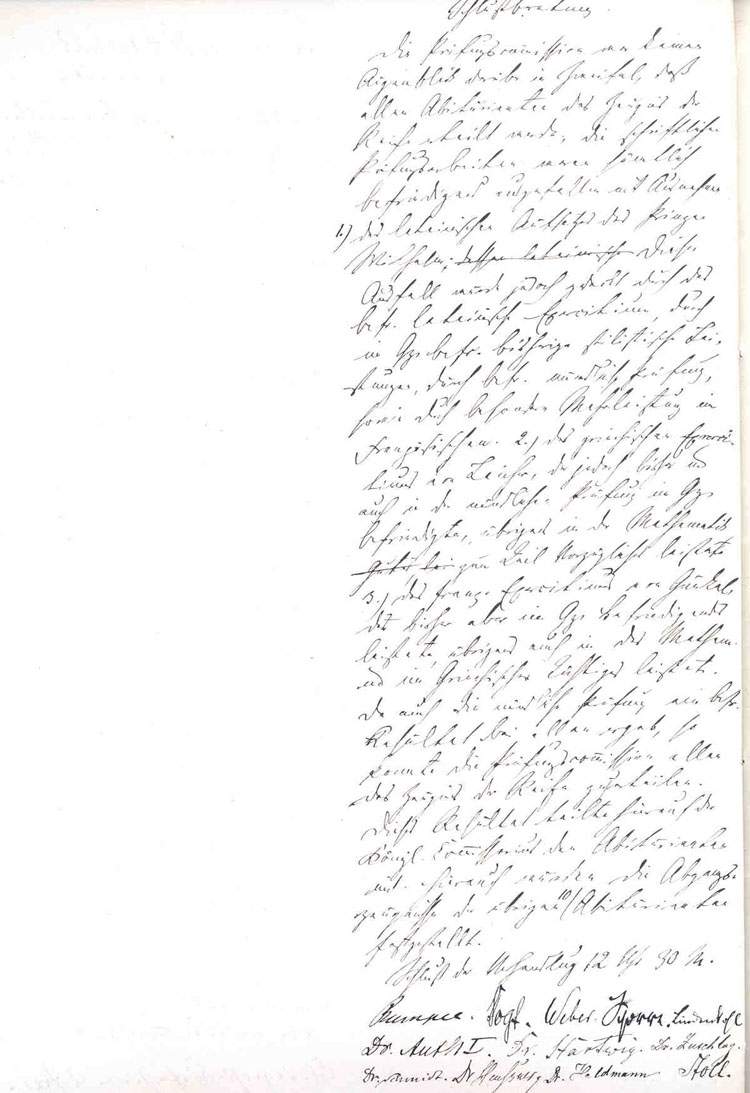 Schlußberatung.
Die Prüfungscommission war keinen
Augenblick darüber in Zweifel, daß
allen Abiturienten das Zeugnis der
Reife erteilt werde, die schriftlichen
Prüfungsarbeiten waren sämtlich
befriedigend ausgefallen mit Ausnahme
1.) des lateinischen Aufsatzes des Prinzen
Wilhelm; dessen lateinische Dieser
Ausfall wurde jedoch gedeckt durch das
befr. lateinische Exercitium, durch
im Gz. befr. bisherige stilistische Lei-
stungen, durch befr. mündliche Prüfung,
sowie durch besondere Mehrleistung im
Französischen. 2.) des griechischen Exerci-
tiums von, der jedoch bisher und
auch in der mündlichen Prüfung im Gz.
befriedigte, übrigens in der Mathematik
zum Teil Vorzügliches leistete
3.) des franz. Exercitiums von Gunkel,
der bisher aber im Gz. Befriedigendes
leistete, übrigens auch in der Mathem.
und im Griechischen Tüchtiges leistete.
Da auch die mündliche Prüfung ein befr.
Resultat bei allen ergab, so
konnte die Prüfungscommission allen
das Zeugnis der Reife zuerteilen.
Dieses Resultat teilte hierauf der
Königl. Commissarius den Abiturienten
mit. Hierauf wurden die Abgangs-
zeugnisse der übrigen 10 Abiturienten
festgestellt.
Schluß der Verhandlung 12 Uhr 30 M.
Rumpel. Vogt. Weber. Schorre. Lindenkohl
Dr. Auth I. Dr. Hartwig. Dr. Zuschlag.
Dr. Schmidt. Dr. Heldmann Stoll.